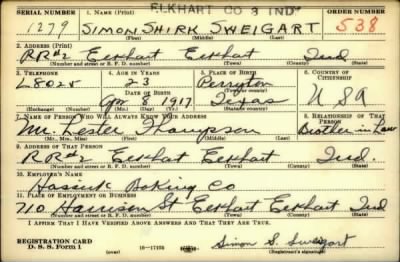 ELKHART CO 3 IND
SERIAL NUMBER 1. NAME (Print) ORDER NUMBER
1279 SIMON SHIRK SWEIGART 538
(First) (Middle) (Last)
2. ADDRESS (Print)
RR#2 Elkhart Elkhart Ind
(Number and street or R. F. D. number) (Town) (County) (State)
3. TELEPHONE 4. AGE IN YEARS 5. PLACE OF BIRTH 6. COUNTRY OF CITIZENSHIP
L8025 23 Perryton
DATE OF BIRTH
Apr 8 1917 Texas USA
(Exchange) (Number) (Mo.) (Day) (Yr.) (State or country)
7. NAME OF PERSON WHO WILL ALWAYS KNOW YOUR ADDRESS 8. RELATIONSHIP OF THAT PERSON
Mr. Lester Thompson Brother in Law
(Mr., Mrs., Miss) (First) (Middle) (Last)
9. ADDRESS OF THAT PERSON
RR#2 Elkhart Elkhart Ind.
(Number and street or R. F. D. number) (Town) (County) (State)
10. EMPLOYER'S NAME
Baking Co
11. PLACE OF EMPLOYMENT OR BUSINESS
710 Harrison St Elkhart Elkhart Ind
(Number and street or R. F. D. number) (Town) (County) (State)
I AFFIRM THAT I HAVE VERIFIED ABOVE ANSWERS AND THAT THEY ARE TRUE.
REGISTRATION CARD
D. S. S. Form 1 (over) 16—17105 Simon S. Sweigart
(Registrant's signature)